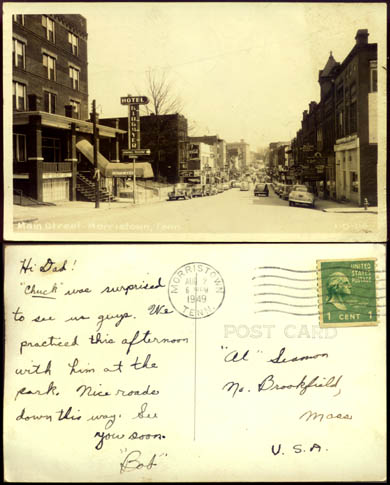 HOTEL
Main Street - Morristown, Tenn.
Hi Dad!
"Chuck" was surprised
to see us guys. We
practiced this afternoon
with him at the
park. Nice roads
down this way. See
you soon.
"Bob"
MORRISTOWN
AUG 7
1949
TENN.
UNITED
STATES
POSTAGE
1 CENT 1
POST CARD
"Al" Seamon
No. Brookfield,
Mass
U. S. A.